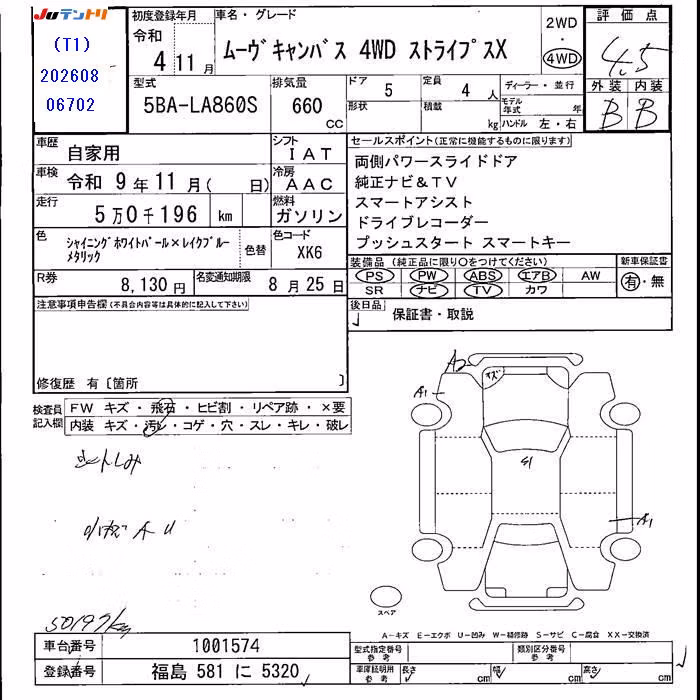 JUテントリ
(T1)
202608
06702
初度登録年月
令和
4年11月
車名・グレード
ムーヴキャンバス 4WD ストライプスX
2WD
・
4WD
評価点
4.5
外装 内装
B B
型式
5BA-LA860S
排気量
660
CC
ドア
5
形状
定員
4 人
積載
kg
ディーラー・並行
モデル年式 年
ハンドル 左・右
車歴
自家用
シフト
IAT
車検
令和 9年11月( 日)
冷房
AAC
走行
5万0千196 km
燃料
ガソリン
色
シャイニングホワイトパール×レイクブルーメタリック
色替
色コード
XK6
R券
8,130円
名変通知期限
8月25日
セールスポイント(正常に機能するものに限ります)
両側パワースライドドア
純正ナビ&TV
スマートアシスト
ドライブレコーダー
プッシュスタート スマートキー
装備品 (純正品に限り○をつけてください)
PS PW ABS エアB AW
SR ナビ TV カワ
新車保証書
有・無
後日品
保証書・取説
注意事項申告欄(不具合内容等は具体的に記入して下さい)
修復歴 有〔箇所 〕
検査員記入欄
FW キズ・飛石・ヒビ割・リペア跡・×要
内装 キズ・汚レ・コゲ・穴・スレ・キレ・破レ
シートしみ
A U
50197km
A2
キズ
A1
G1
A1
スペア
A-キズ E-エクボ U-凹み W-補修跡 S-サビ C-腐食 XX-交換済
車台番号
1001574
登録番号
福島 581 に 5320
型式指定番号
参考
類別区分番号
参考
車庫証明用
参考
長さ cm
幅 cm
高さ cm